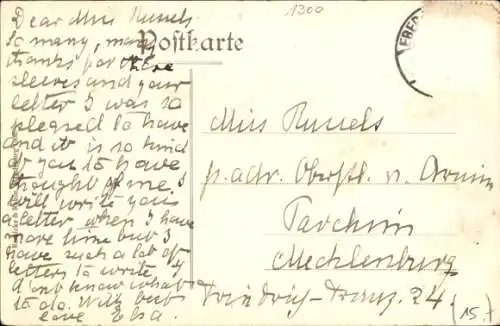 1300
Dear Miss Runels
So many, many
Postkarte
thanks for the
sleeves and your
letter I was so
pleased to have
and it is so kind
of you to have
thought of me. I
will write you
a letter when I have
more time but I
have such a lot of
letters to write, I
don't know what
to do. With best
love Elsa.
Miss Runels
p. adr. Oberstl. v. Arnim
Parchim
Mecklenburg
Friedrich-Franz. 24
(15.)